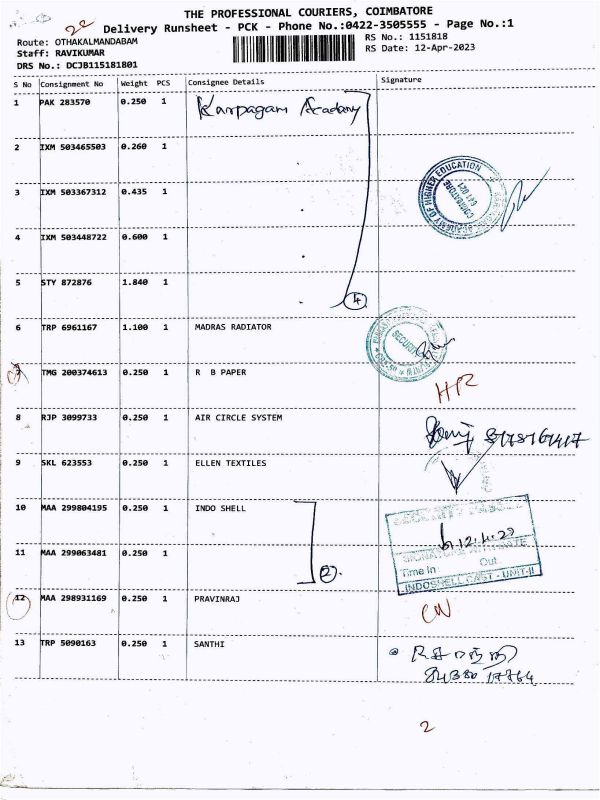 THE PROFESSIONAL COURIERS, COIMBATORE
Delivery Runsheet - PCK - Phone No.:0422-3505555 - Page No.:1
Route: OTHAKALMANDABAM
RS No.: 1151818
Staff: RAVIKUMAR
RS Date: 12-Apr-2023
DRS No.: DCJB115181801
S No Consignment No Weight PCS Consignee Details Signature
1 PAK 283570 0.250 1 Karpagam Academy
2 IXM 503465503 0.260 1
3 IXM 503367312 0.435 1
ACADEMY OF HIGHER EDUCATION
COIMBATORE
641 021
4 IXM 503448722 0.600 1
5 STY 872876 1.840 1
4
6 TRP 6961167 1.100 1 MADRAS RADIATOR
SECURITY
7 TMG 200374613 0.250 1 R B PAPER
8 RJP 3099733 0.250 1 AIR CIRCLE SYSTEM
9 SKL 623553 0.250 1 ELLEN TEXTILES
10 MAA 299804195 0.250 1 INDO SHELL
11 MAA 299063481 0.250 1
2
SIGNATURE WITH DATE
Time In Out
INDOSHELL CAST - UNIT-II
12 MAA 298931169 0.250 1 PRAVINRAJ
CN
13 TRP 5090163 0.250 1 SANTHI
84380 17764
2